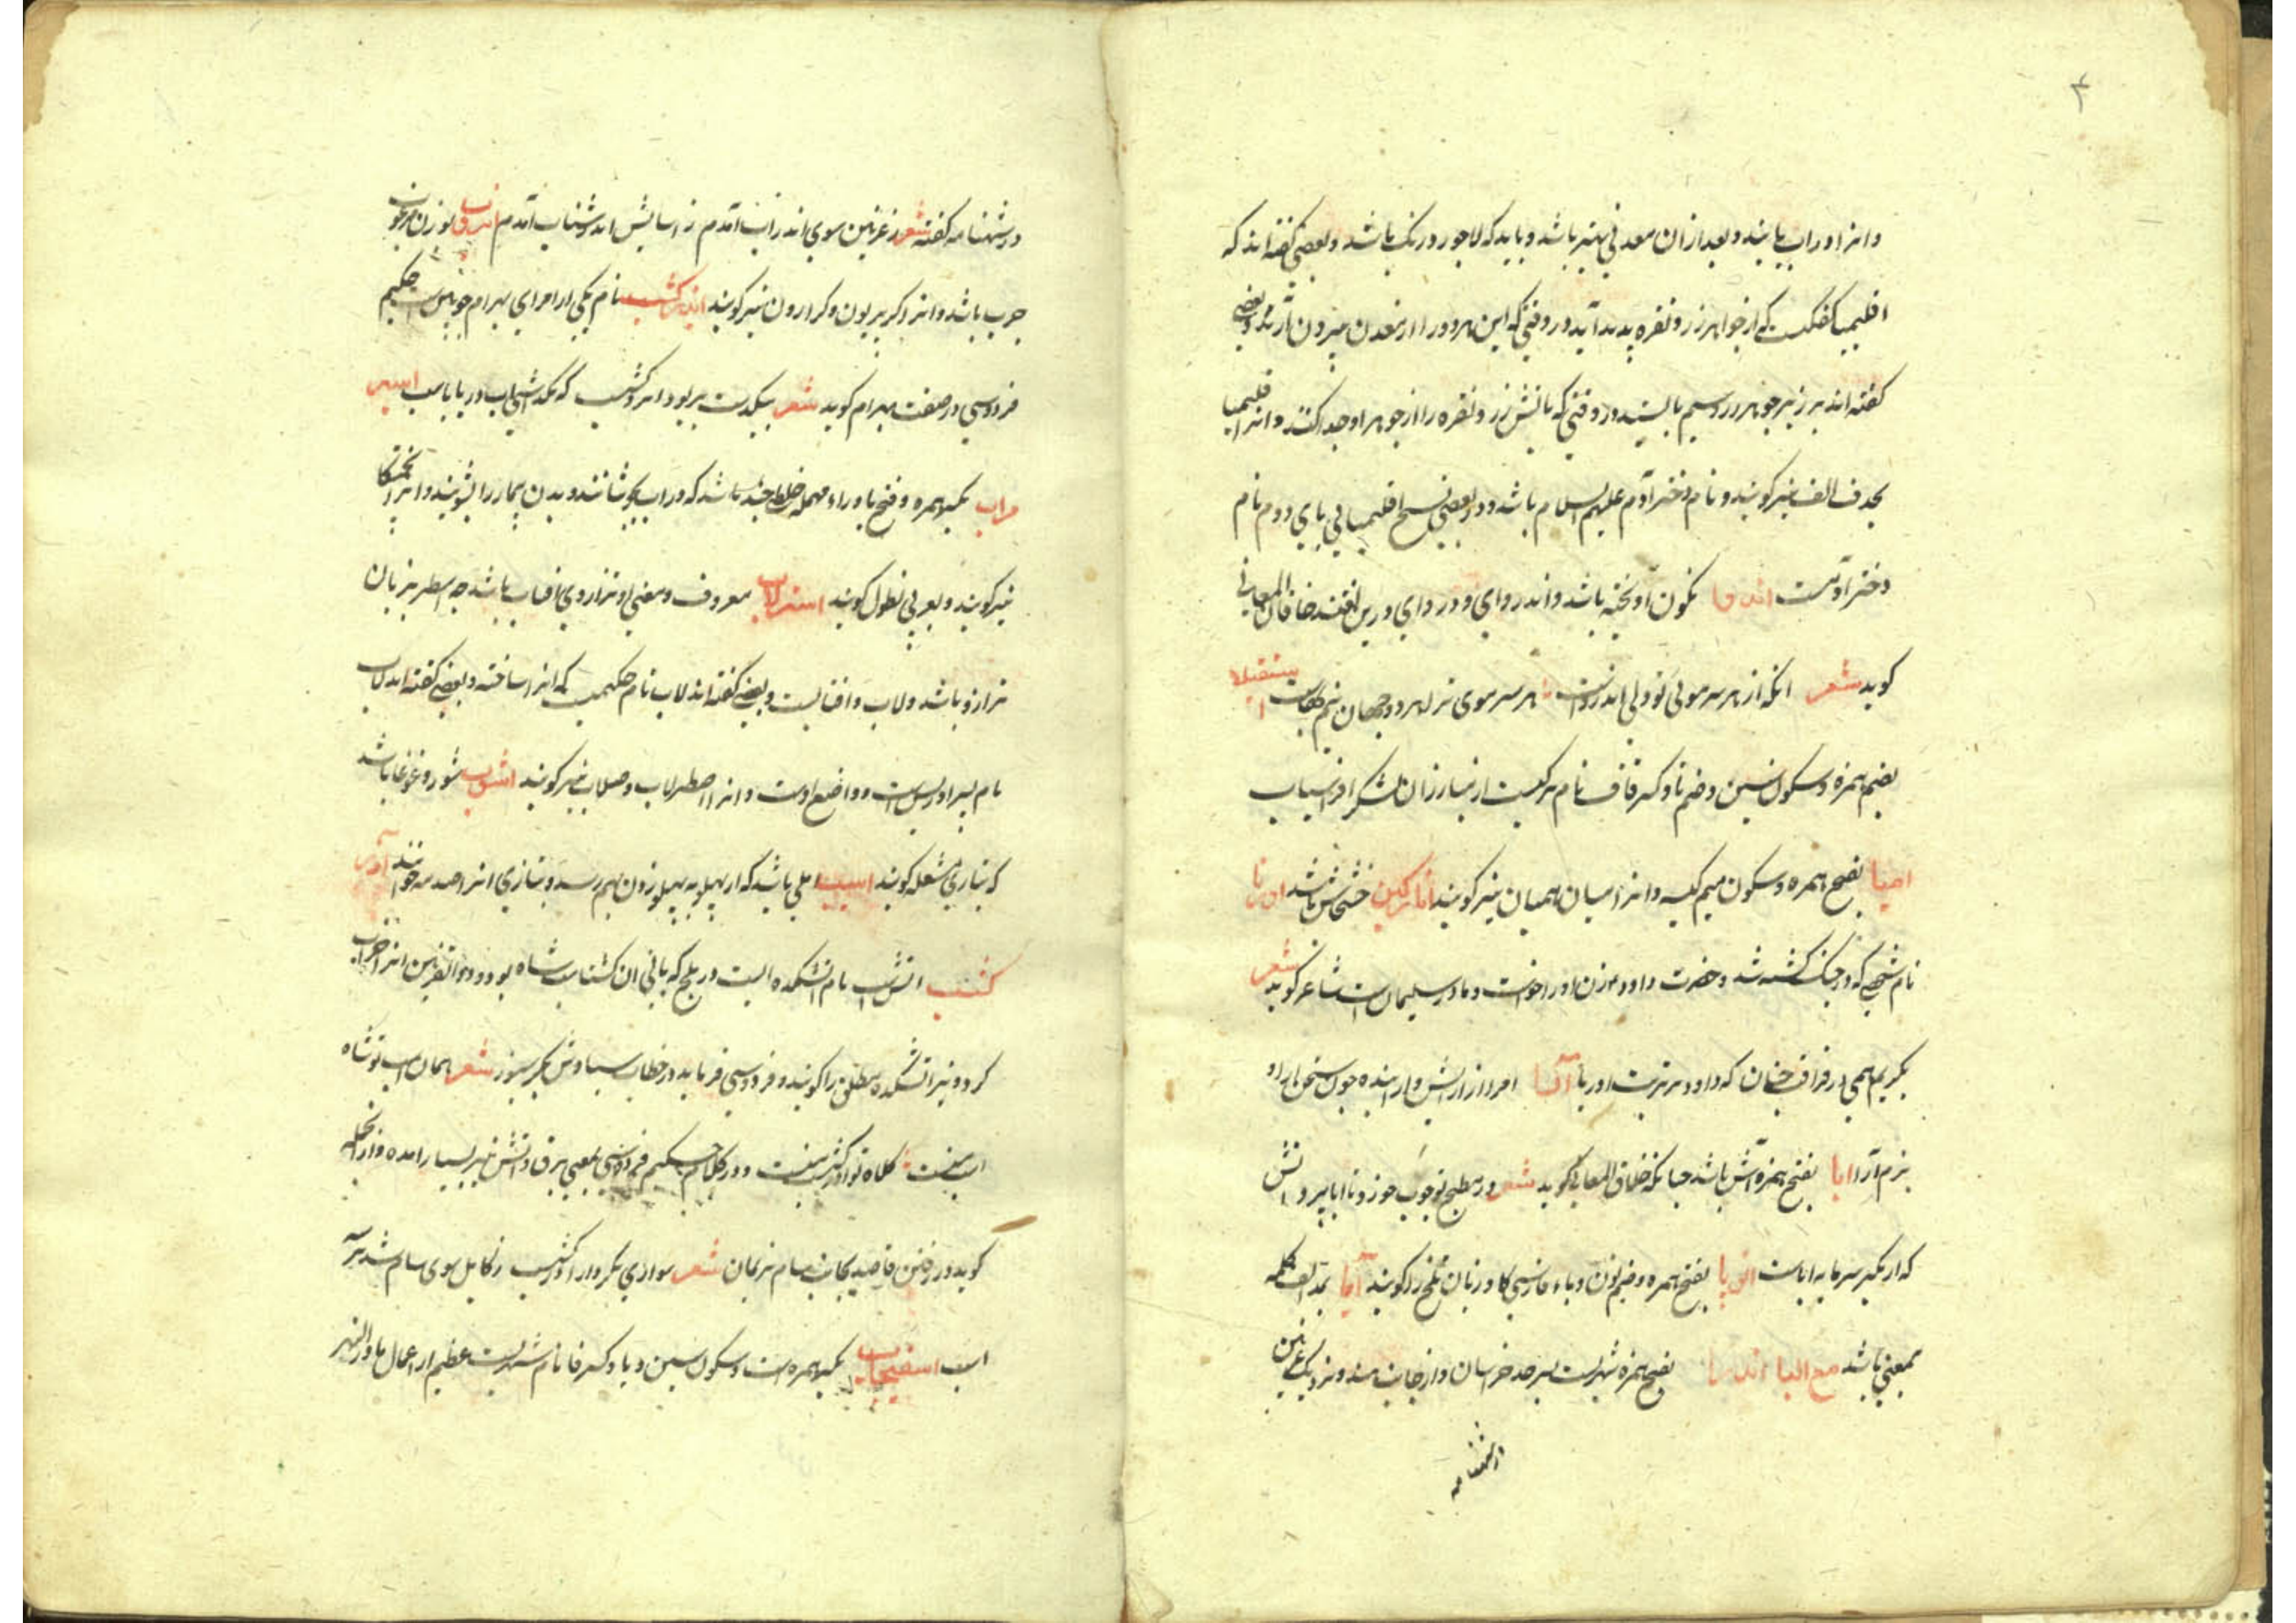 ۲
وانرا در اب یابند و بعد از ان معدنی بهتر باشد و باید که لاجورد رنک باشد و بعضی کفته اند که
اقلیمیا کفکیست که از جواهر زر و نقره پدید آید در وقتی که این هر دو را از معدن بیرون آرند و بعضی
کفته اند بر زبر جوهر زر و سیم بالیستد در وقتی که باتش زر و نقره را از جوهر او جدا کنند و انرا قلیمیا
بحذف الف نیز کویند و نام دختر آدم علیهم السلام باشد و در بعضی نسخ اقلیمیا بی یای دوم نام
دختر آدمست اندروا نکون آویخته باشد و اندروای و دروای درین لغتند خاقان المعانی
کوید شعر انکه از هر سر موئی تو دلی اندرواست هر سر موی ترا هر دو جهان نیم بهاست استقیلا
بضم همزه و سکون سین و ضم تا و کسر قاف نام ترکیست از مبارزان لشکر افراسیاب
امیا بفتح همزه و سکون میم کیسه و انرا امیان و همیان نیز کویند انارکین خشخاش باشد اوریا
نام شخصی که در جنک کشته شد و حضرت داود زن او را خواست و مادر سلیمان است شاعر کوید شعر
بکریم همی در فراق چنان که داود بر تربت اوریا آرا امر از ارایش و اراینده چون سخن ارا و
بزم آرا ابا بفتح همزه آش باشد چنانکه خلاق المعانی کوید شعر در مطبخ تو چوب خورد تا ابا پزد اتش
که از یکیر سرمایه اباست انوپا بفتح همزه و ضم نون و باء فارسی کاو زبان تلخ را کویند آیا بمد الف کلمه
بمعنی باشد مع البا اندراب بفتح همزه شهریست بسرحد خراسان و از جانب هند و نزدیک غزنین
در شهنامه
در شهنامه کفته شعر ز غزنین سوی اندراب آمدم ز اسایش اندر شتاب آمدم اسروب بوزن مرغوب
چوب باشد و انرا کربریون و کرارون نیز کویند ایزدکشسب نام یکی از امرای بهرام چوبین است حکیم
فردوسی در صفت بهرام کوید شعر بیکدست بر بود ایزد کشسب که بکذاشتی اب دریا باسب اسپر
مراب بکسر همزه و فتح با و راء مهمله خلطی چند باشد که در اب جوشانند و بدن بیمار را بشویند و انرا بخشکا
نیز کویند و بعربی نطول کویند استرلاب معروف و معنی او ترازوی افتاب باشد چه اسطر بزبان
ترازو باشد و لاب افتابست و بعضی کفته اند لاب نام حکیمیست که انرا ساخته و بعضی کفته اند لاب
نام پسر ادریس است و واضع اوست و انرا اصطرلاب و صلاب نیز کویند اشوب شور و غوغا باشد
که بتازی مشغله کویند اسیب المی باشد که از پهلو به پهلو زدن بهم رسد و بتازی انرا صدمه خوانند آذر
کشسب اتش اب نام اتشکده ایست در بلخ که بانی ان کشتاسب شاه بود و ذو القرنین انرا خراب
کرد و نیز اتشکده مطلق را کویند و فردوسی فرماید در خطاب سیاوش بکرسیوز شعر همان اسب تو شاه
اسب منست کلاه تو اذرکشسب منست و در کلام حکیم فردوسی بمعنی برق و اتش نیز بسیار امده و از انجمله
کوید در رفتن قاصد بجانب سام نریمان شعر سواری بکردار اذرکشسب ز کابل سوی سام شد بر سه
اسب اسفیجاب بکسر همزه است و سکون سین و یا و کسر فا نام شهریست عظیم از اعمال ماوراالنهر